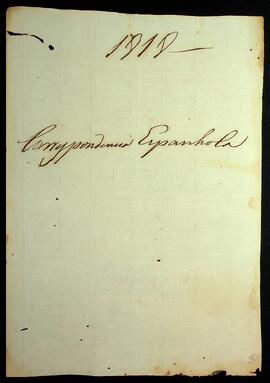 1818
Correspondencia Espanhola